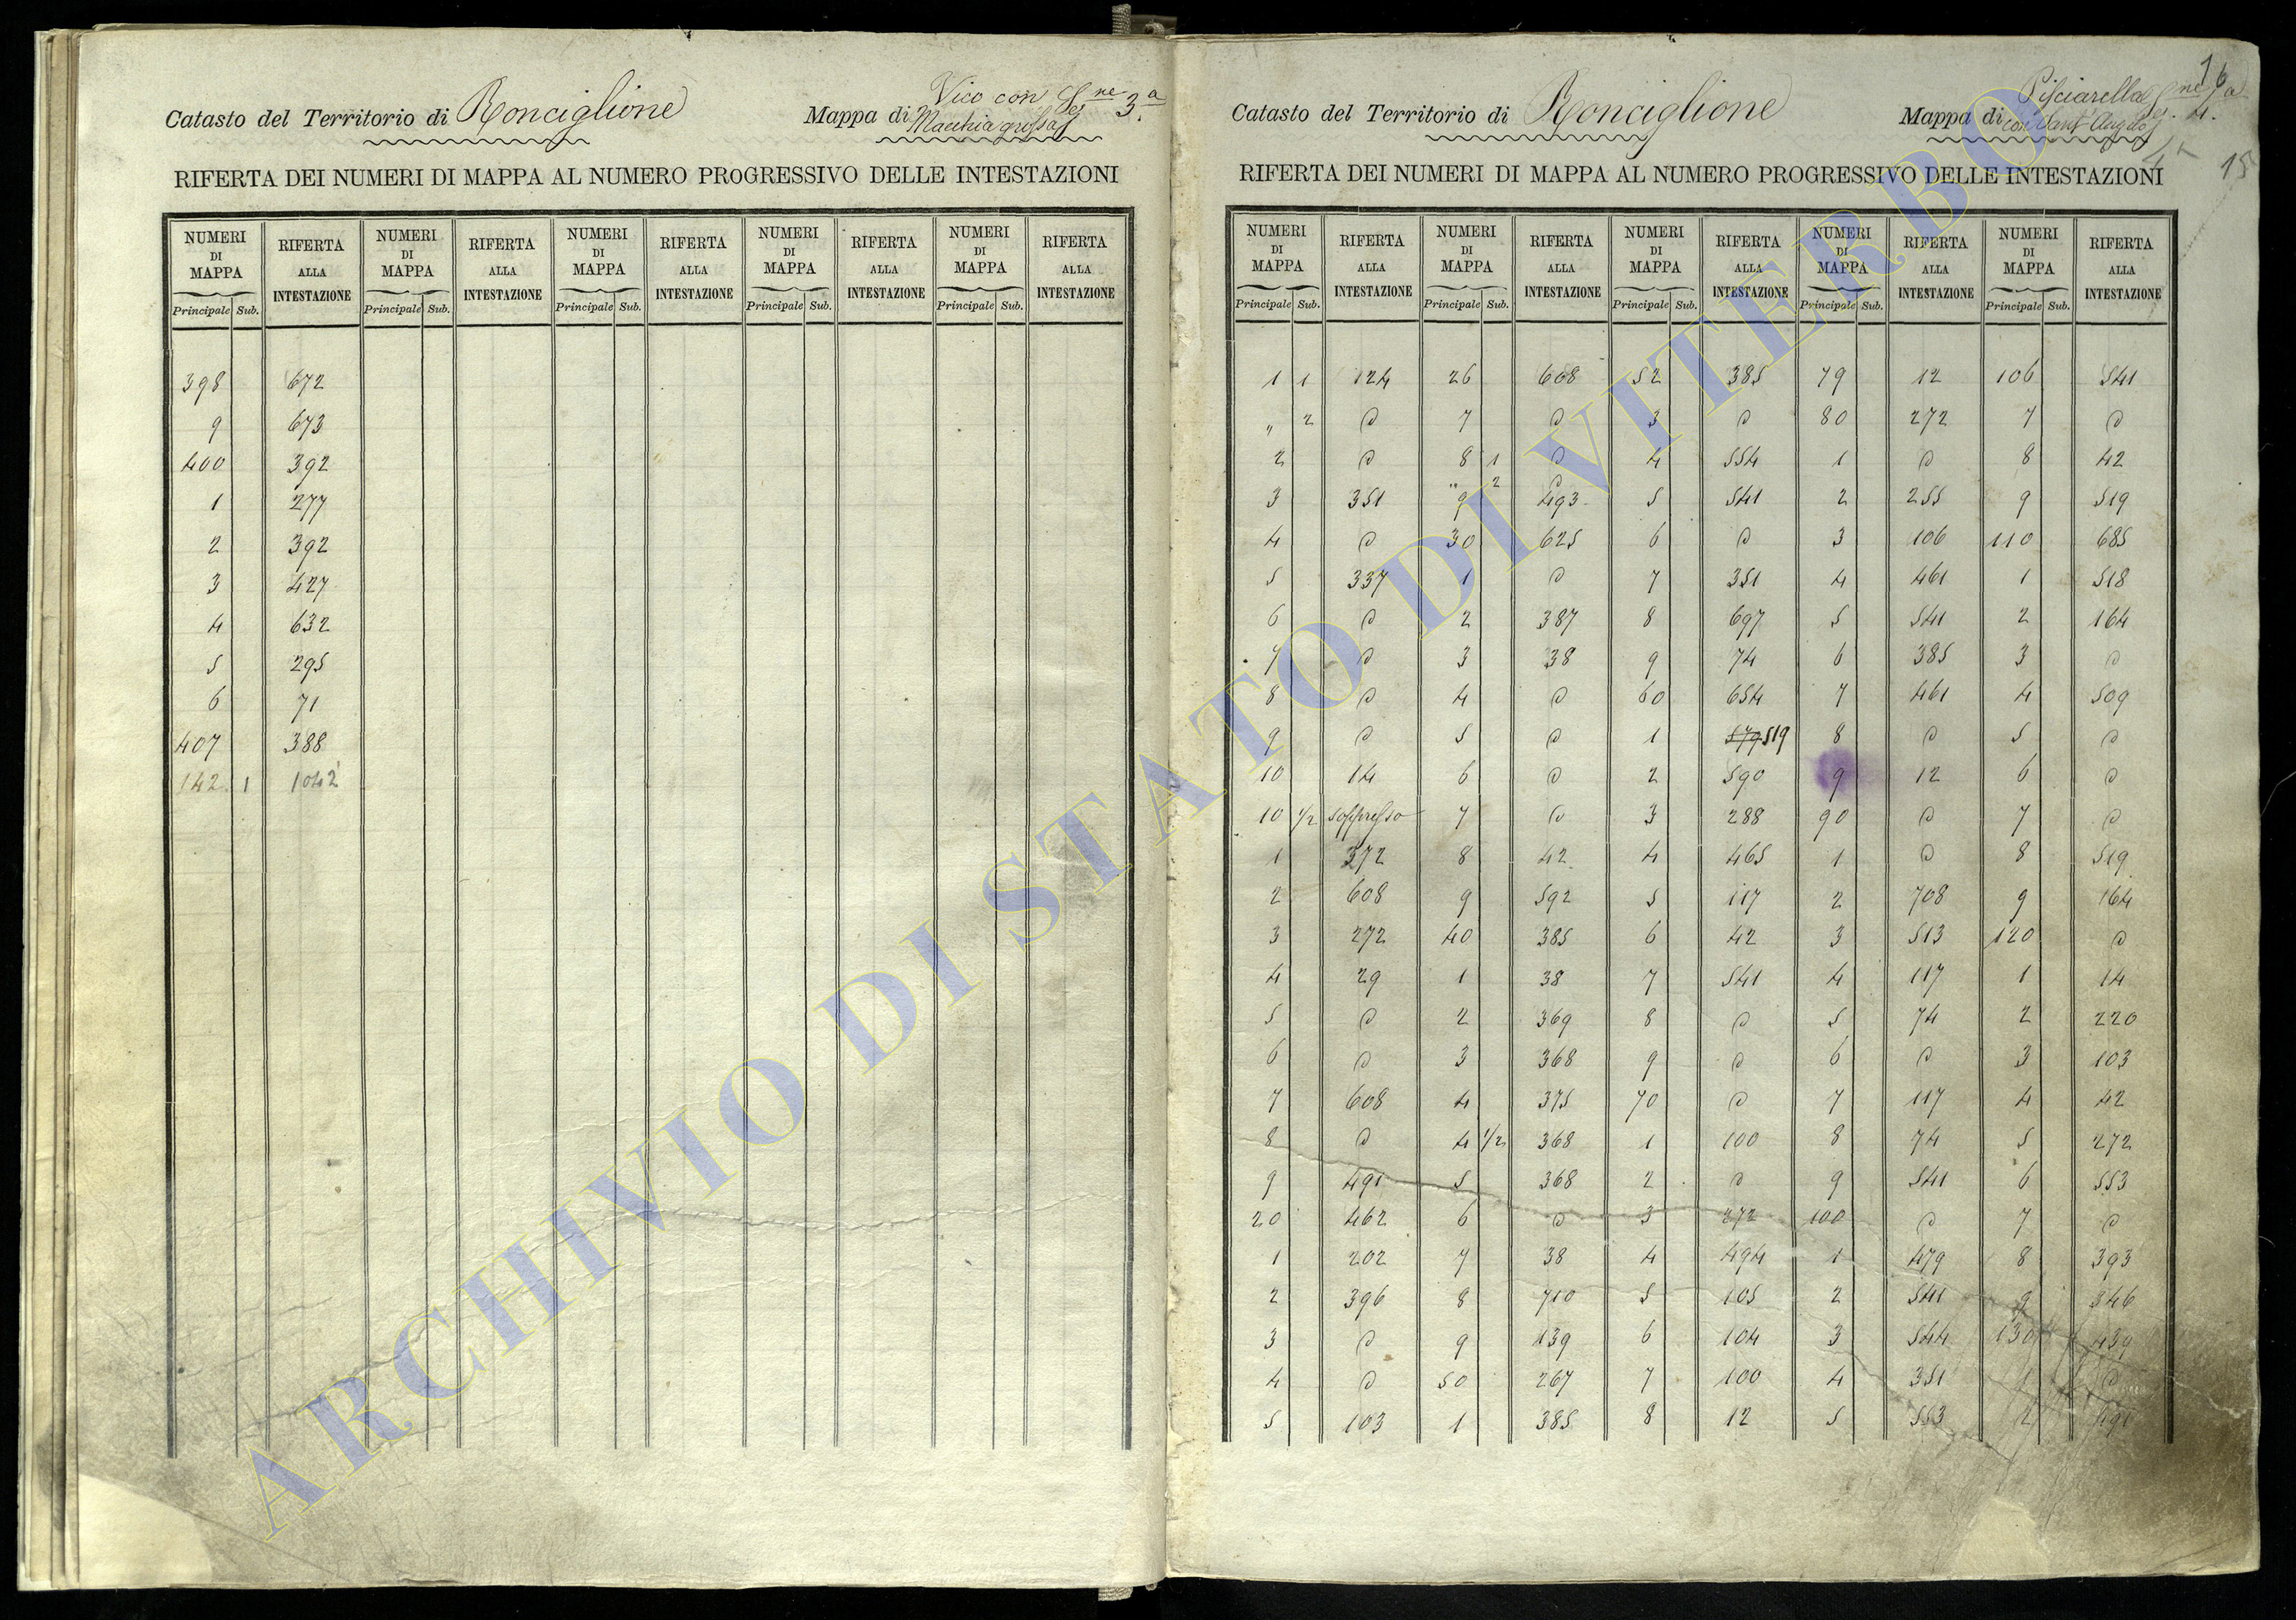 Catasto del Territorio di Ronciglione Mappa di Vico con Macchia grossa Sez.ne 3.a
RIFERTA DEI NUMERI DI MAPPA AL NUMERO PROGRESSIVO DELLE INTESTAZIONI
NUMERI DI MAPPA RIFERTA ALLA INTESTAZIONE NUMERI DI MAPPA RIFERTA ALLA INTESTAZIONE NUMERI DI MAPPA RIFERTA ALLA INTESTAZIONE NUMERI DI MAPPA RIFERTA ALLA INTESTAZIONE NUMERI DI MAPPA RIFERTA ALLA INTESTAZIONE
Principale Sub. Principale Sub. Principale Sub. Principale Sub. Principale Sub.
398 672
9 673
400 392
1 277
2 392
3 427
4 632
5 295
6 71
407 388
142 1 1042
16
Catasto del Territorio di Ronciglione Mappa di Pisciarella con Sant'Angelo 4.
15
RIFERTA DEI NUMERI DI MAPPA AL NUMERO PROGRESSIVO DELLE INTESTAZIONI
NUMERI DI MAPPA RIFERTA ALLA INTESTAZIONE NUMERI DI MAPPA RIFERTA ALLA INTESTAZIONE NUMERI DI MAPPA RIFERTA ALLA INTESTAZIONE NUMERI DI MAPPA RIFERTA ALLA INTESTAZIONE NUMERI DI MAPPA RIFERTA ALLA INTESTAZIONE
Principale Sub. Principale Sub. Principale Sub. Principale Sub. Principale Sub.
1 1 124 26 608 52 385 79 12 106 541
" 2 @ 7 @ 3 @ 80 272 7 @
2 @ 8 1 @ 4 554 1 @ 8 42
" 2 @
3 351 9 493 5 541 2 255 9 519
4 @ 30 625 6 @ 3 106 110 685
5 337 1 @ 7 351 4 461 1 518
6 @ 2 387 8 697 5 541 2 164
7 @ 3 38 9 74 6 385 3 @
8 @ 4 @ 60 654 7 461 4 509
9 @ 5 @ 1 579 519 8 @ 5 @
10 14 6 @ 2 590 9 12 6 @
10 1/2 soppresso 7 @ 3 288 90 @ 7 @
1 372 8 42 4 465 1 @ 8 519
2 608 9 592 5 117 2 708 9 164
3 272 40 385 6 42 3 513 120 @
4 29 1 38 7 541 4 117 1 14
5 @ 2 369 8 @ 5 74 2 220
6 @ 3 368 9 @ 6 @ 3 103
7 608 4 375 70 @ 7 117 4 42
8 @ 4 1/2 368 1 100 8 74 5 272
9 491 5 368 2 @ 9 541 6 553
20 462 6 @ 3 272 100 @ 7 @
1 202 7 38 4 494 1 479 8 393
2 396 8 710 5 105 2 541 9 346
3 @ 9 139 6 104 3 544 130 439
4 @ 50 267 7 100 4 351 1 @
5 103 1 385 8 12 5 553 2 491
ARCHIVIO DI STATO DI VITERBO